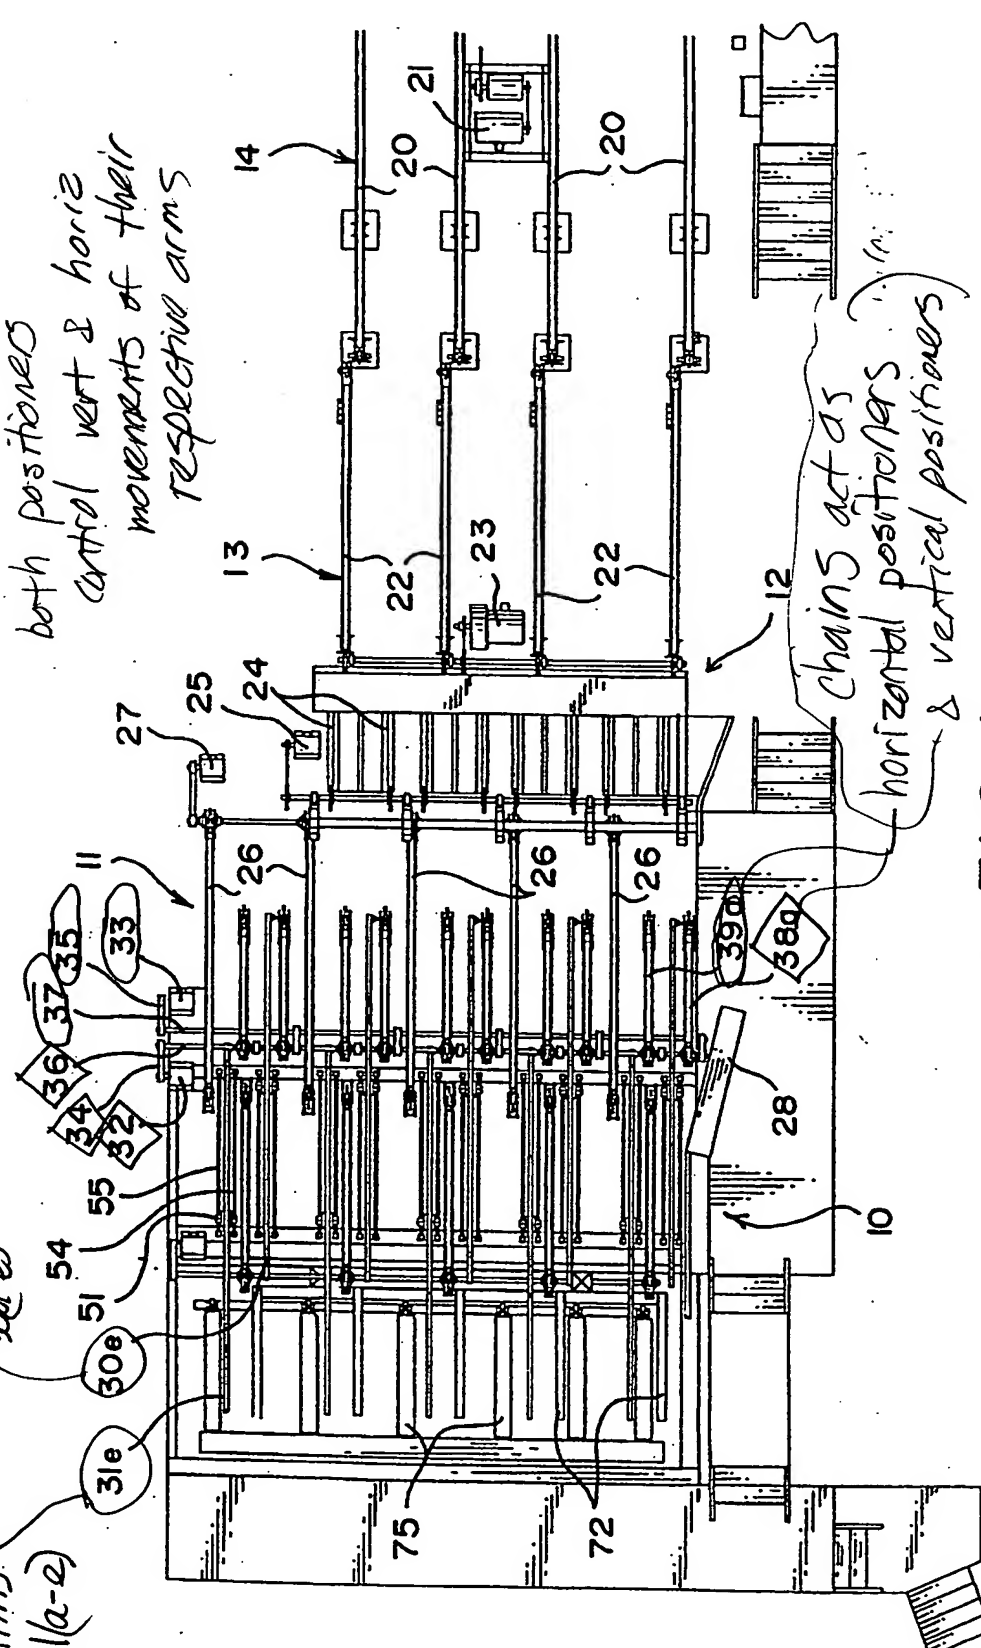 both positioners
control vert & horiz
movements of their
respective arms
14
20
21
20
13
22
23
22
12
27
25
24
11
26
26
26
33
35
37
36
34
32
39a
38a
28
10
55
54
51
30e
31e
75
72
chains act as
horizontal positioners
& vertical positioners